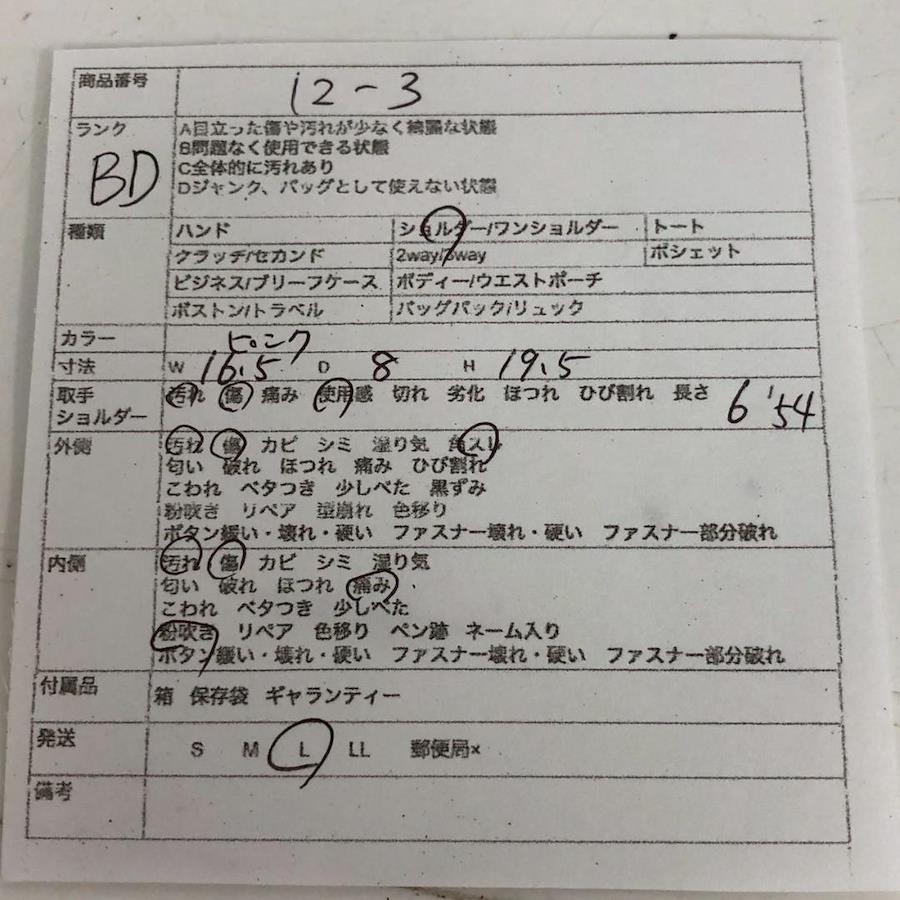 商品番号 12-3
ランク BD
A目立った傷や汚れが少なく綺麗な状態
B問題なく使用できる状態
C全体的に汚れあり
Dジャンク、バッグとして使えない状態
種類 ハンド ショルダー/ワンショルダー トート
クラッチ/セカンド 2way/3way ポシェット
ビジネス/ブリーフケース ボディー/ウエストポーチ
ボストン/トラベル バッグパック/リュック
カラー ピンク
寸法 W 16.5 D 8 H 19.5
取手 汚れ 傷 痛み 使用感 切れ 劣化 ほつれ ひび割れ 長さ 6 '54
ショルダー
外側 汚れ 傷 カビ シミ 湿り気 角スレ
匂い 破れ ほつれ 痛み ひび割れ
こわれ ベタつき 少しべた 黒ずみ
粉吹き リペア 型崩れ 色移り
ボタン緩い・壊れ・硬い ファスナー壊れ・硬い ファスナー部分破れ
内側 汚れ 傷 カビ シミ 湿り気
匂い 破れ ほつれ 痛み
こわれ ベタつき 少しべた
粉吹き リペア 色移り ペン跡 ネーム入り
ボタン緩い・壊れ・硬い ファスナー壊れ・硬い ファスナー部分破れ
付属品 箱 保存袋 ギャランティー
発送 S M L LL 郵便局×
備考